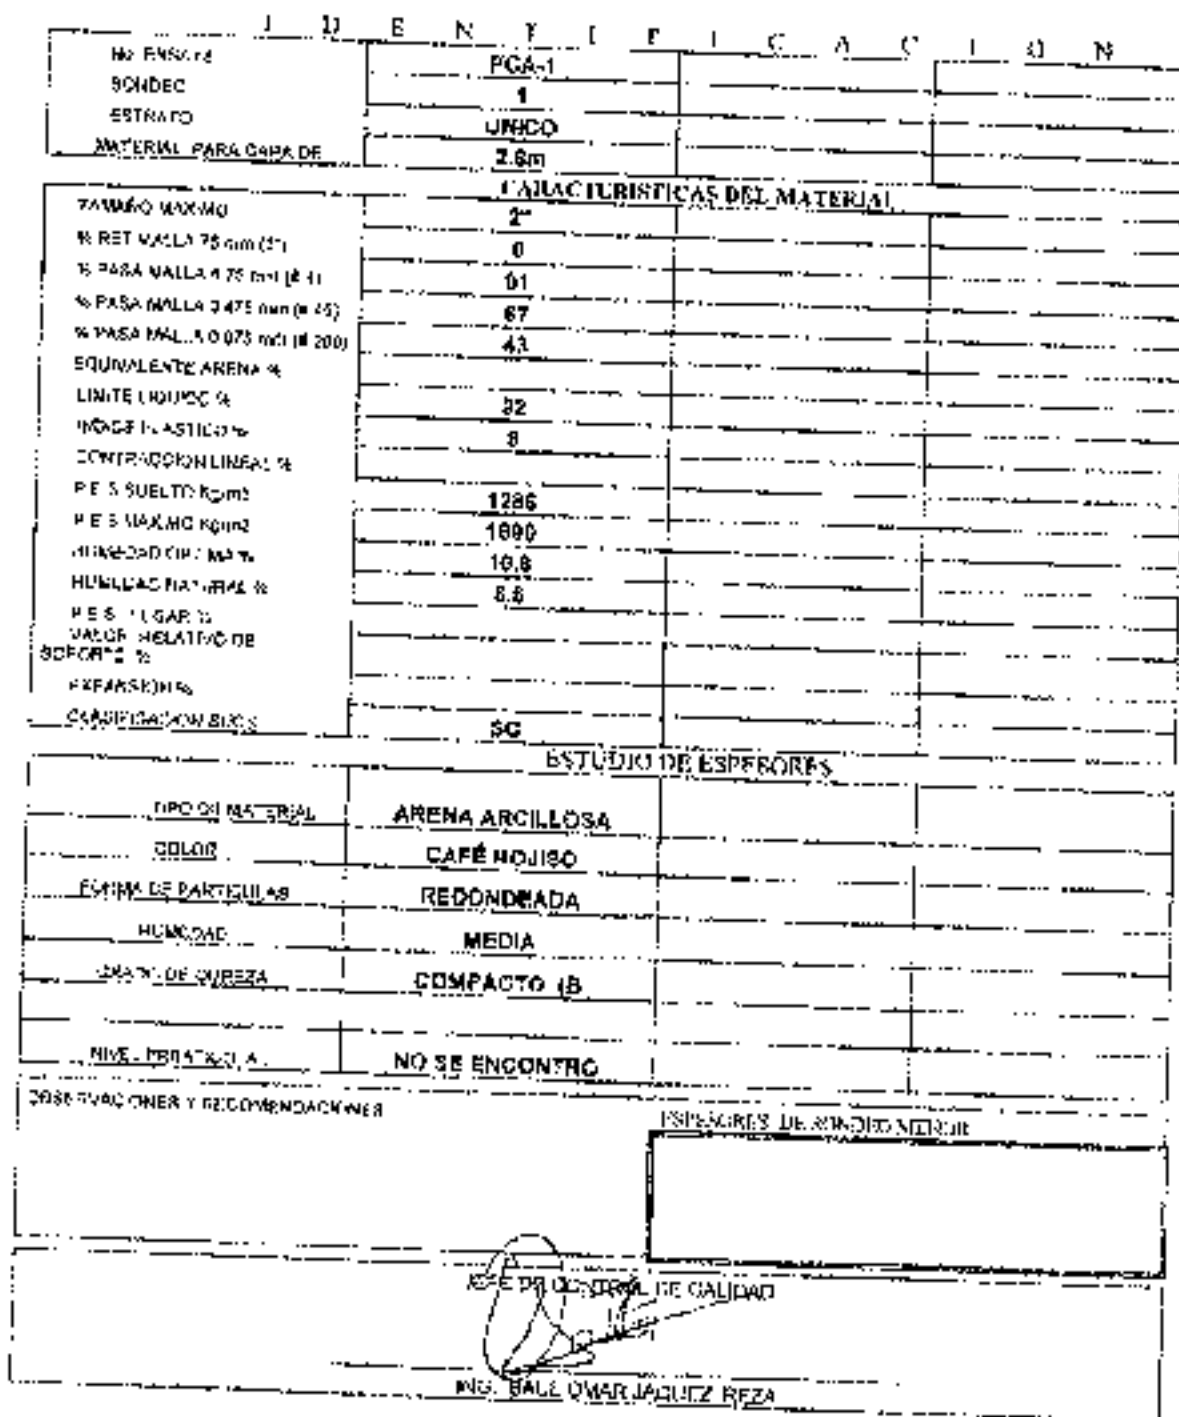 I D E N T I F I C A C I O N
No. ENSAYE PCA-1
SONDEO 1
ESTRATO UNICO
MATERIAL PARA CAPA DE 2.6m
CARACTURISTICAS DEL MATERIAL
TAMAÑO MAXIMO 2"
% RET MALLA 75 mm (3") 0
% PASA MALLA 4.75 mm (# 4) 91
% PASA MALLA 0.475 mm (# 40) 67
% PASA MALLA 0.075 mm (# 200) 43
EQUIVALENTE ARENA %
LIMITE LIQUIDO % 32
INDICE PLASTICO %
CONTRACCION LINEAL %
P E S SUELTO Kg/m3 1286
P E S MAXIMO Kg/m3
HUMEDAD OPTIMA %
HUMEDAD NATURAL %
P E S LUGAR %
VALOR RELATIVO DE
SOPORTE %
EXPANSION %
CLASIFICACION SUCS SC
ESTUDIO DE ESPESORES
TIPO DE MATERIAL ARENA ARCILLOSA
COLOR CAFÉ ROJISO
FORMA DE PARTICULAS REDONDEADA
HUMEDAD MEDIA
GRADO DE DUREZA COMPACTO (B
NIVEL FREATICO NO SE ENCONTRO
OBSERVACIONES Y RECOMENDACIONES
ESPESORES DE SONDEO
JEFE DE CONTROL DE CALIDAD
ING. OMAR JAQUEZ REZA